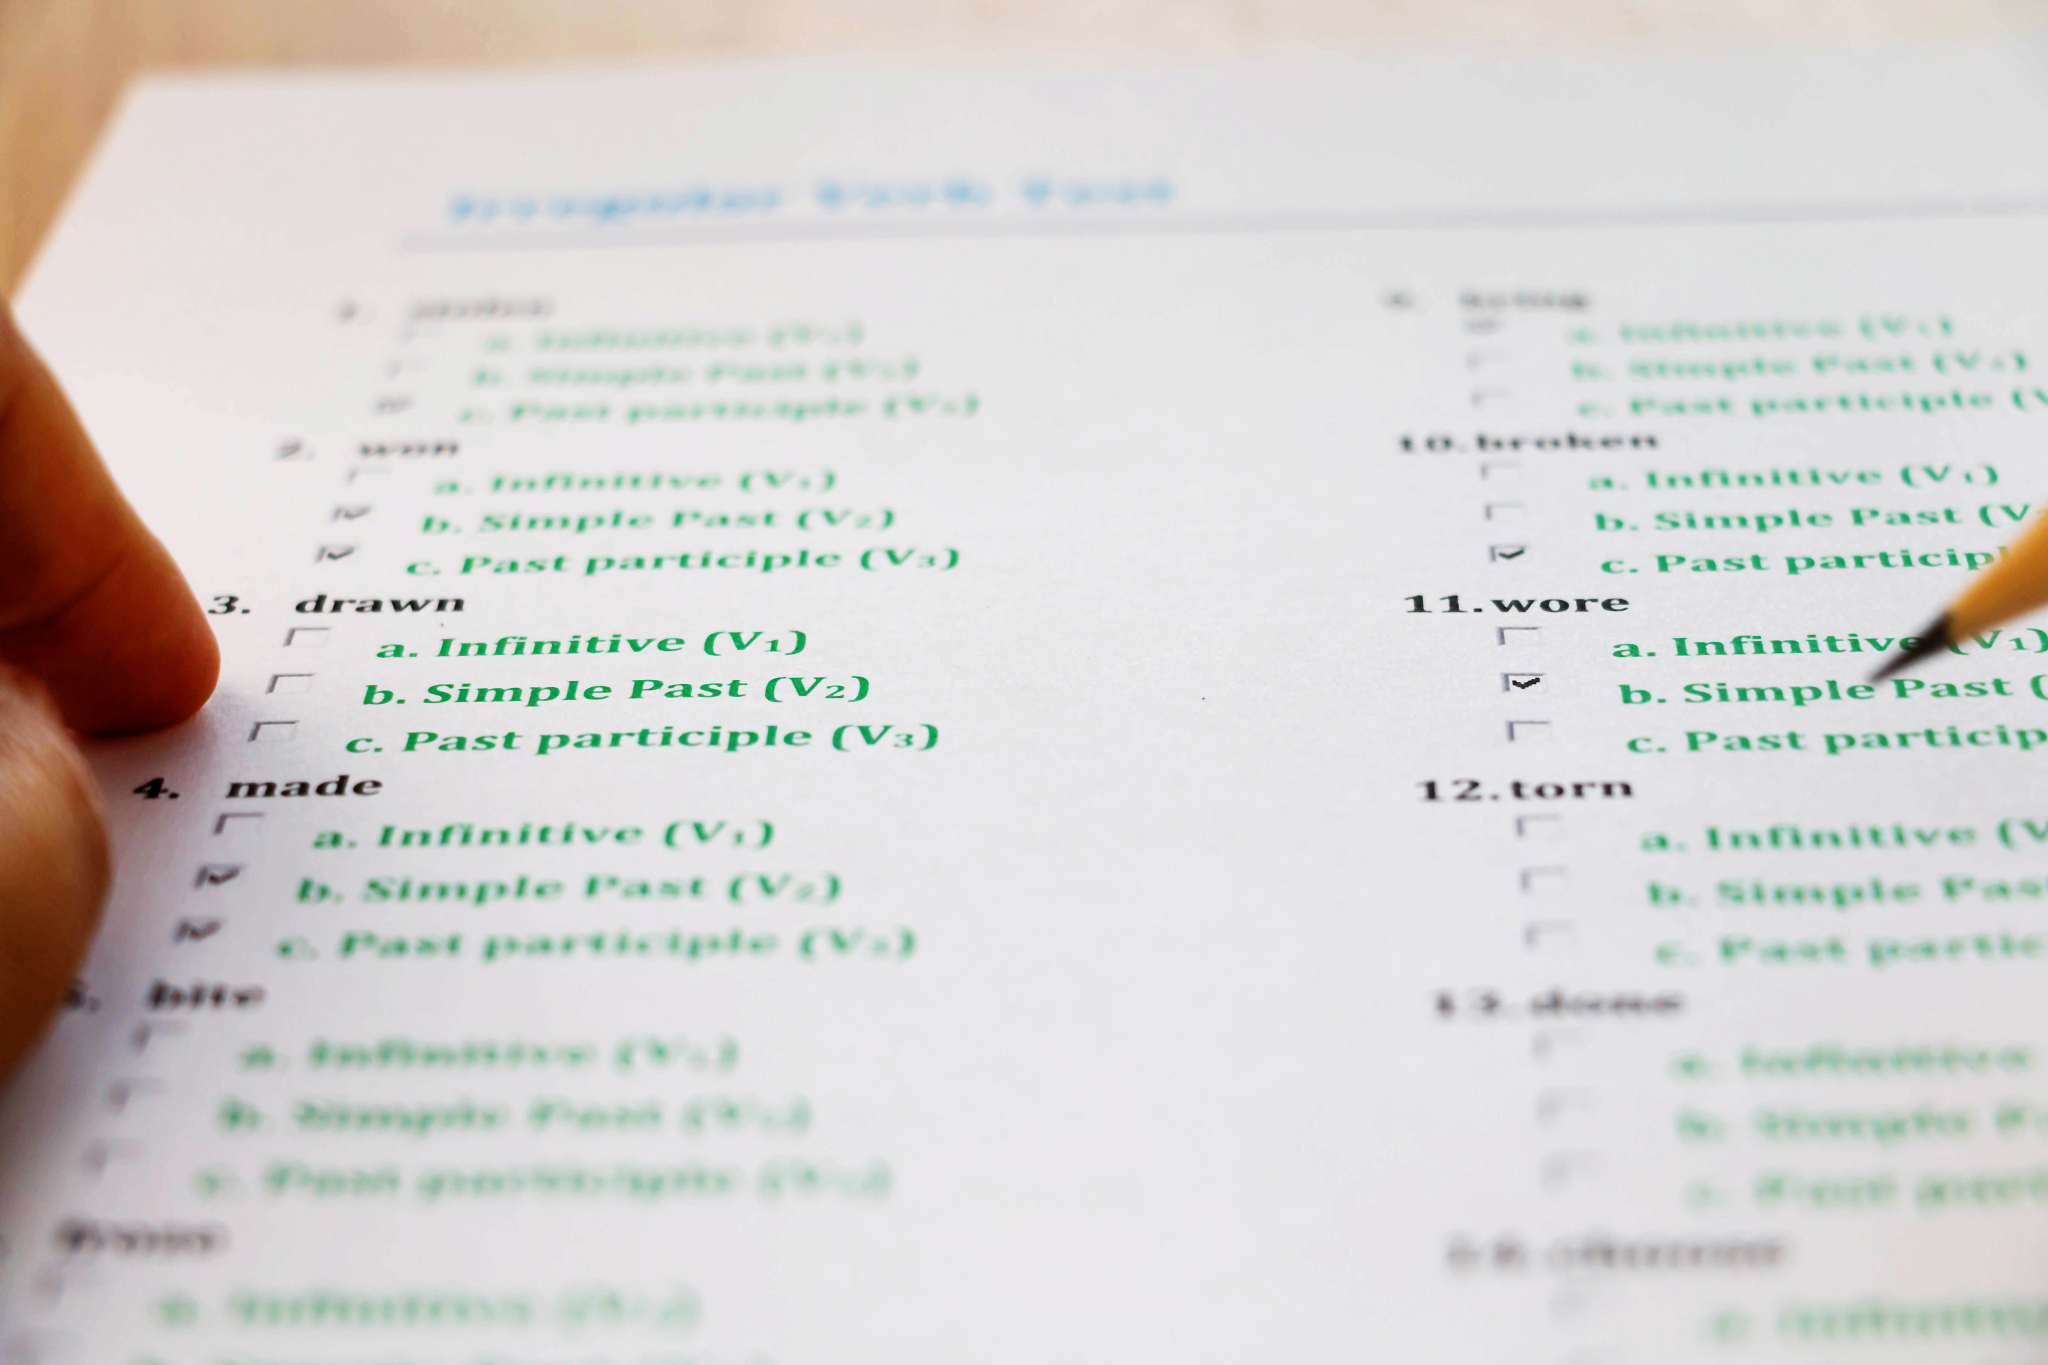 Irregular Verb Test
1. stolen
a. Infinitive (V1)
b. Simple Past (V2)
c. Past participle (V3)
2. won
a. Infinitive (V1)
b. Simple Past (V2)
c. Past participle (V3)
3. drawn
a. Infinitive (V1)
b. Simple Past (V2)
c. Past participle (V3)
4. made
a. Infinitive (V1)
b. Simple Past (V2)
c. Past participle (V3)
5. bite
a. Infinitive (V1)
b. Simple Past (V2)
c. Past participle (V3)
a. Infinitive (V1)
9. bring
a. Infinitive (V1)
b. Simple Past (V2)
c. Past participle (V
10. broken
a. Infinitive (V1)
b. Simple Past (V
c. Past particip
11. wore
a. Infinitive (V1)
b. Simple Past (
c. Past particip
12. torn
a. Infinitive (V
b. Simple Pas
c. Past partic
13. done
a. Infinitive
b. Simple
c. Past
14.
a.